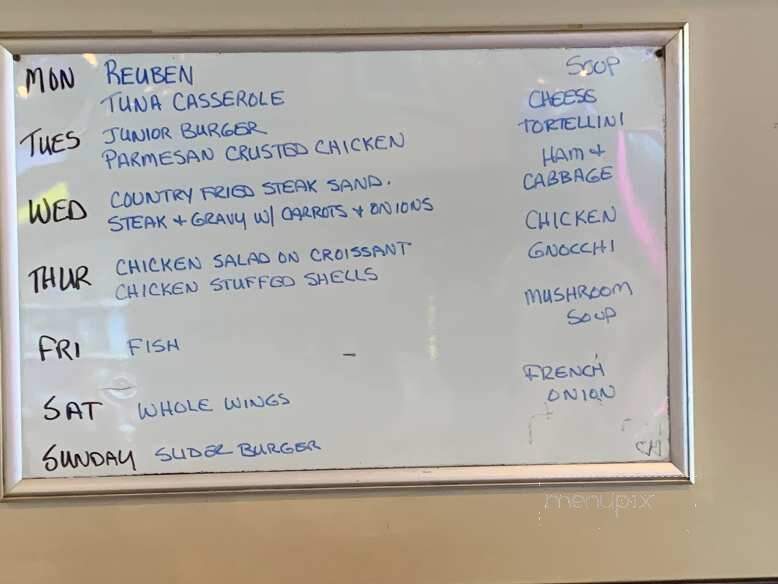 MON REUBEN SOUP
TUNA CASSEROLE CHEESE
TUES JUNIOR BURGER TORTELLINI
PARMESAN CRUSTED CHICKEN HAM +
WED COUNTRY FRIED STEAK SAND. CABBAGE
STEAK + GRAVY W/ CARROTS + ONIONS CHICKEN
THUR CHICKEN SALAD ON CROISSANT GNOCCHI
CHICKEN STUFFED SHELLS MUSHROOM
SOUP
FRI FISH
FRENCH
SAT WHOLE WINGS ONION
SUNDAY SLIDER BURGER
menupix